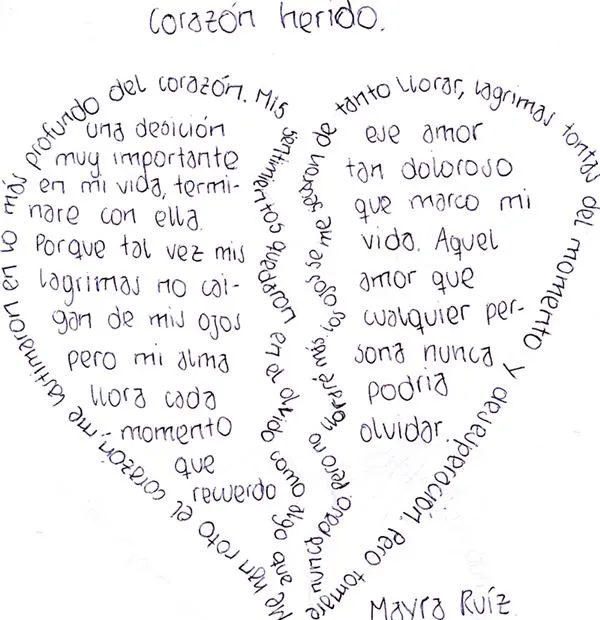 Corazón herido.
Me han roto el corazón, me lastimaron en lo más profundo del corazón. Mis
en la olvido como algo que
nunca pero no lloraré más, ojos se me secaron de tanto llorar, lagrimas tontas del momento y desesperación. Pero tomare
una desición
muy importante
en mi vida, termi-
nare con ella.
Porque tal vez mis
lagrimas no cai-
gan de mis ojos
pero mi alma
llora cada
momento
que
recuerdo
ese amor
tan doloroso
que marco mi
vida. Aquel
amor que
cualquier per-
sona nunca
podria
olvidar.
Mayra Ruíz.